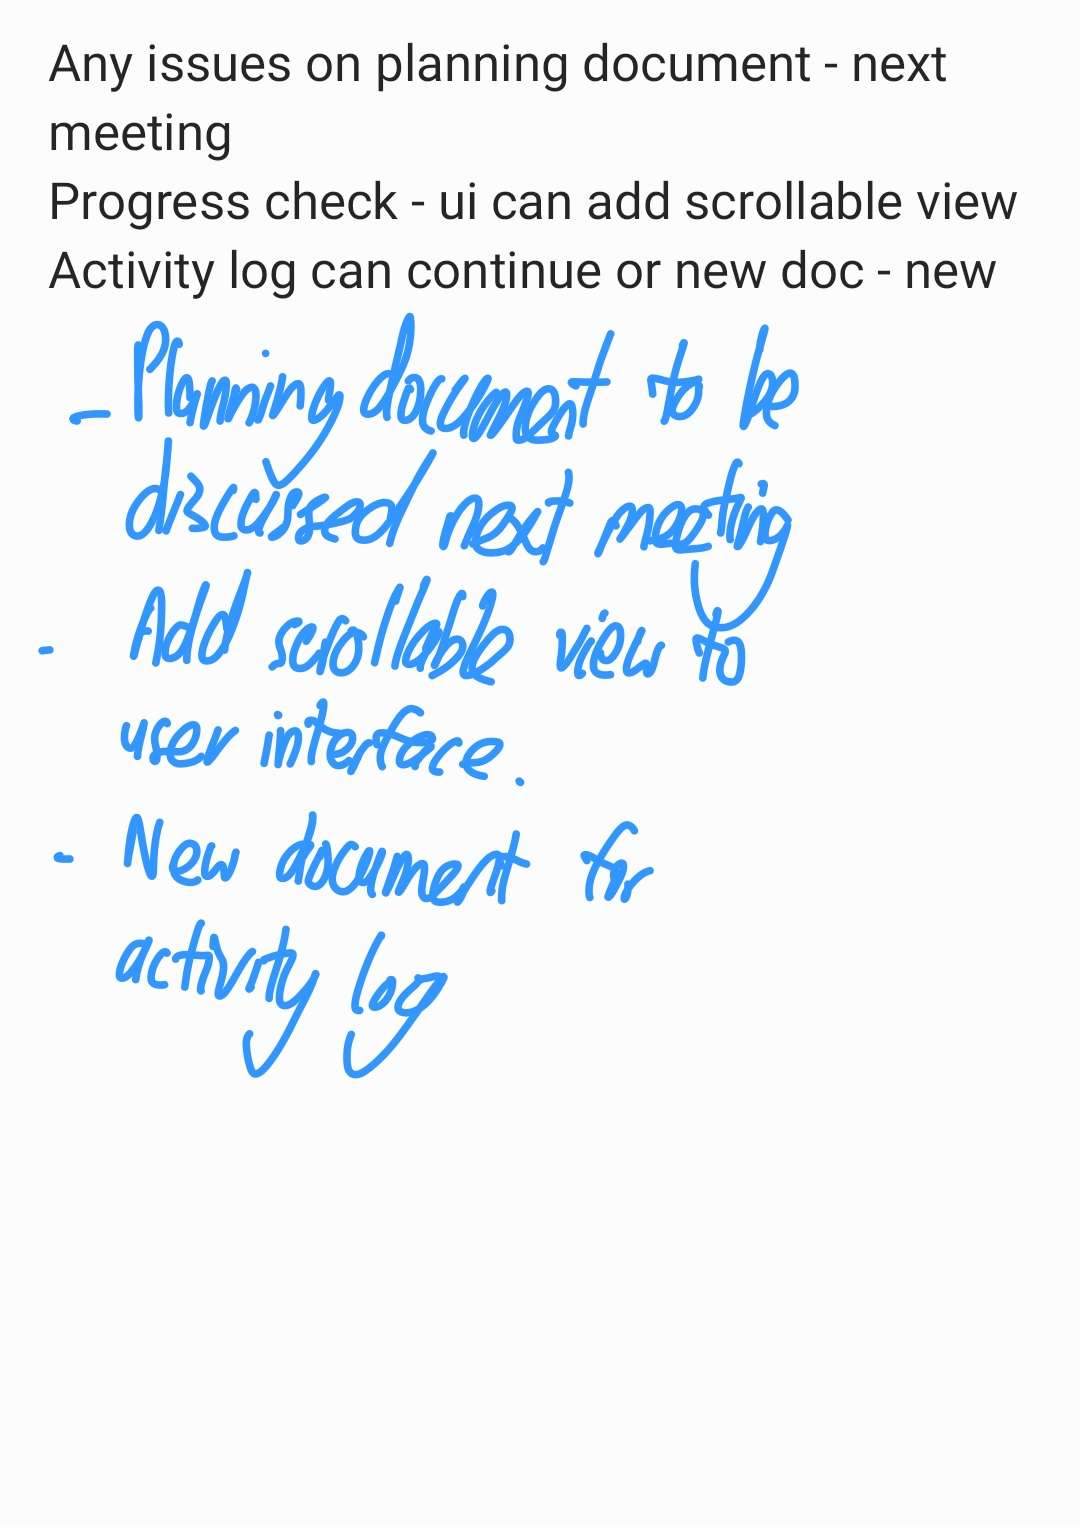 Any issues on planning document - next
meeting
Progress check - ui can add scrollable view
Activity log can continue or new doc - new
- Planning document to be
discussed next meeting
- Add scrollable view to
user interface.
- New document for
activity log